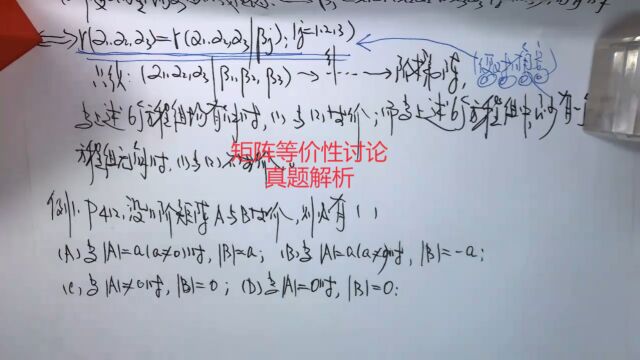 r(α₁,α₂,α₃)=r(α₁,α₂,α₃|βj), (j=1,2,3)
(α₁,α₂,α₃|β₁,β₂,β₃)→ ⋯ →阶梯形阵,
当上述6个方程组均有解时,(1)与(2)等价;而当上述6个方程组中,至少有一个
方程组无解时,(1)与(2)不等价。
矩阵等价性讨论
真题解析
例1. P42,设n阶矩阵A与B等价,则必有( )
(A)当|A|=a(a≠0)时,|B|=a; (B)当|A|=a(a≠0)时,|B|=-a;
(C)当|A|≠0时,|B|=0; (D)当|A|=0时,|B|=0;